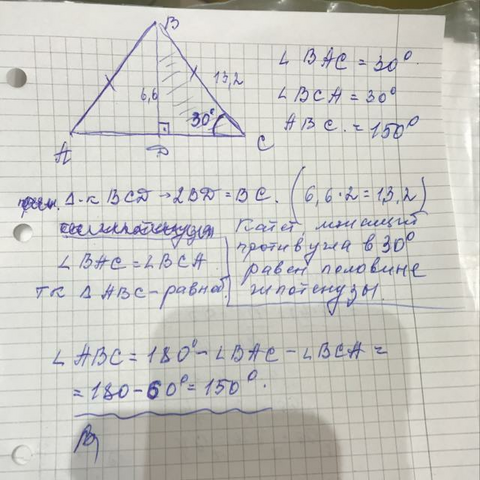 B
6,6
13,2
30°
A
D
C
∠ BAC = 30°
∠ BCA = 30°
ABC = 150°
Δ-к BCD → 2BD = BC. (6,6·2 = 13,2)
Катет, лежащий
против угла в 30°
равен половине
гипотенузы.
∠ BAC = ∠BCA
т к Δ ABC - равноб.
∠ ABC = 180° - ∠BAC - ∠BCA =
= 180 - 60° = 150°.